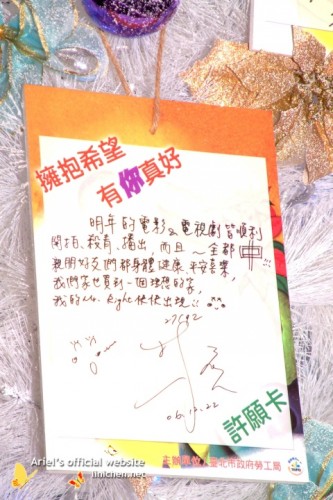 擁抱希望
有你真好
明年的電影&電視劇皆順利
開拍、殺青、播出、而且~全部中!!!
親朋好友們都身體健康、平安喜樂,
我們家也買到一個理想的家,
我的Mr. Right快快出現!!
06.12.22
許願卡
主辦單位:臺北市政府勞工局
Ariel's official website
linichen.net